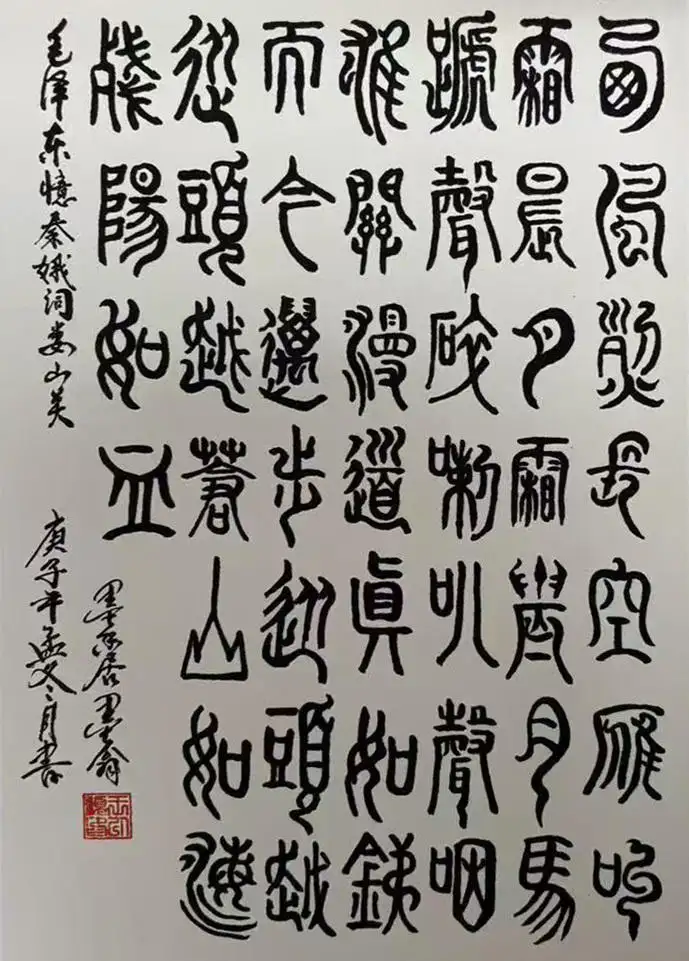 西風烈長空雁叫
霜晨月霜晨月馬
蹏聲碎喇叭聲咽
雄關漫道眞如銕
而今邁步從頭越
從頭越蒼山如海
殘陽如血
毛泽东憶秦娥词娄山关
庚子年孟冬月书